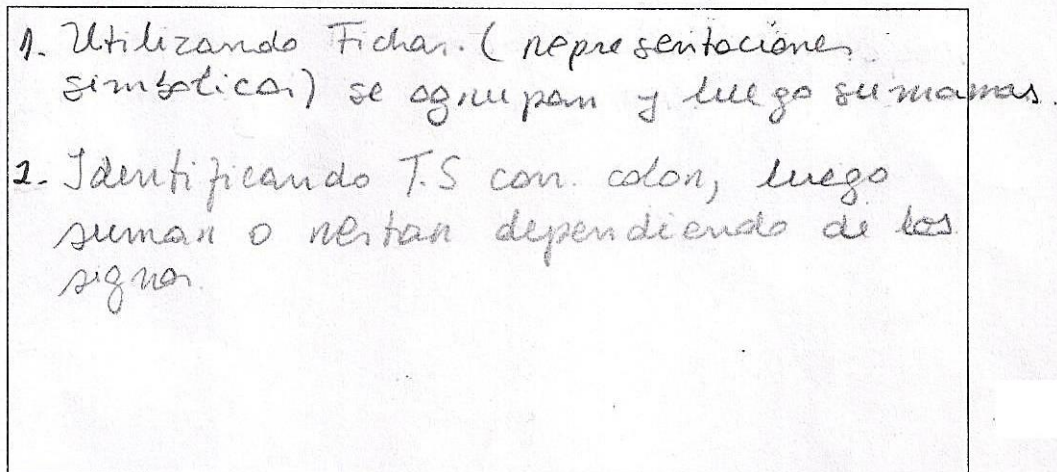 1. Utilizando Fichas. (representaciones
simbolicas) se agrupan y luego sumamos.
2- Identificando T.S con. color, luego
suman o restan dependiendo de los
signos.